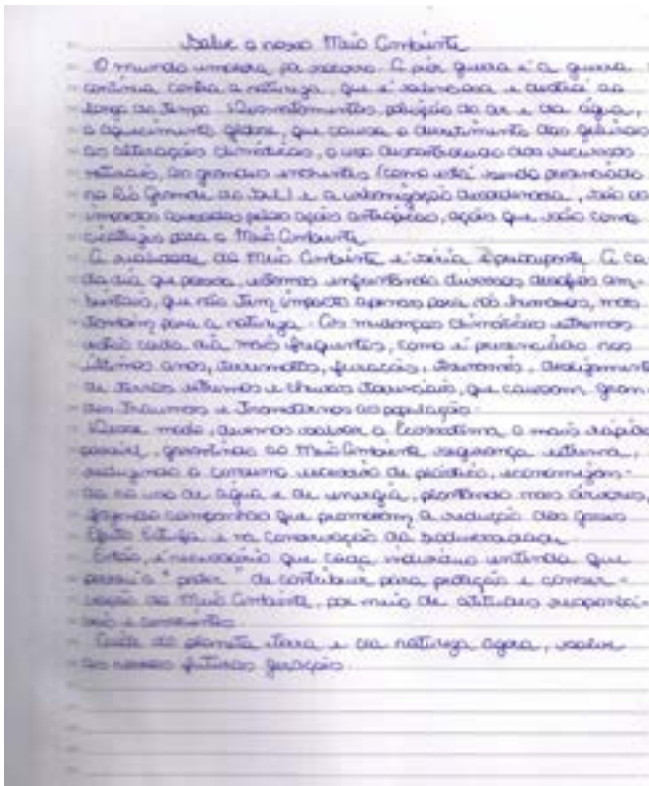 Salve o nosso Meio Ambiente
O mundo implora por socorro. A pior guerra é a guerra
contínua contra a natureza, que é silenciosa e destrói ao
longo do tempo. Desmatamentos, poluição do ar e da água,
o aquecimento global, que causa o derretimento das geleiras
as alterações climáticas, o uso descontrolado dos recursos
naturais, as grandes enchentes (como está sendo presenciado
no Rio Grande do Sul) e a urbanização desordenada, são os
impactos causados pelas ações antrópicas, ações que são como
cicatrizes para o Meio Ambiente.
A realidade do Meio Ambiente é séria e preocupante. A ca-
da dia que passa, estamos enfrentando diversos desafios am-
bientais, que não tem impacto apenas para nós humanos, mas
também para a natureza. As mudanças climáticas extremas
estão cada dia mais frequentes, como é presenciado nos
últimos anos, terremotos, furacões, tsunamis, deslizamento
de terras extremos e chuvas torrenciais, que causam gran-
des traumas e transtornos as população.
Desse modo, devemos salvar o Ecossistema o mais rápido
possível, garantindo ao Meio Ambiente segurança externa,
reduzindo o consumo excessivo de plástico, economizan-
do no uso de água e de energia, plantando mais árvores,
fazendo campanhas que promovam a redução dos gases
Efeito Estufa e na conservação da biodiversidade.
Então, é necessário que cada indivíduo entenda que
possui o "poder" de contribuir para proteção e conser-
vação do Meio Ambiente, por meio de atitudes responsá-
veis e conscientes.
Cuide do planeta terra e da natureza agora, salve
as nossas futuras gerações.